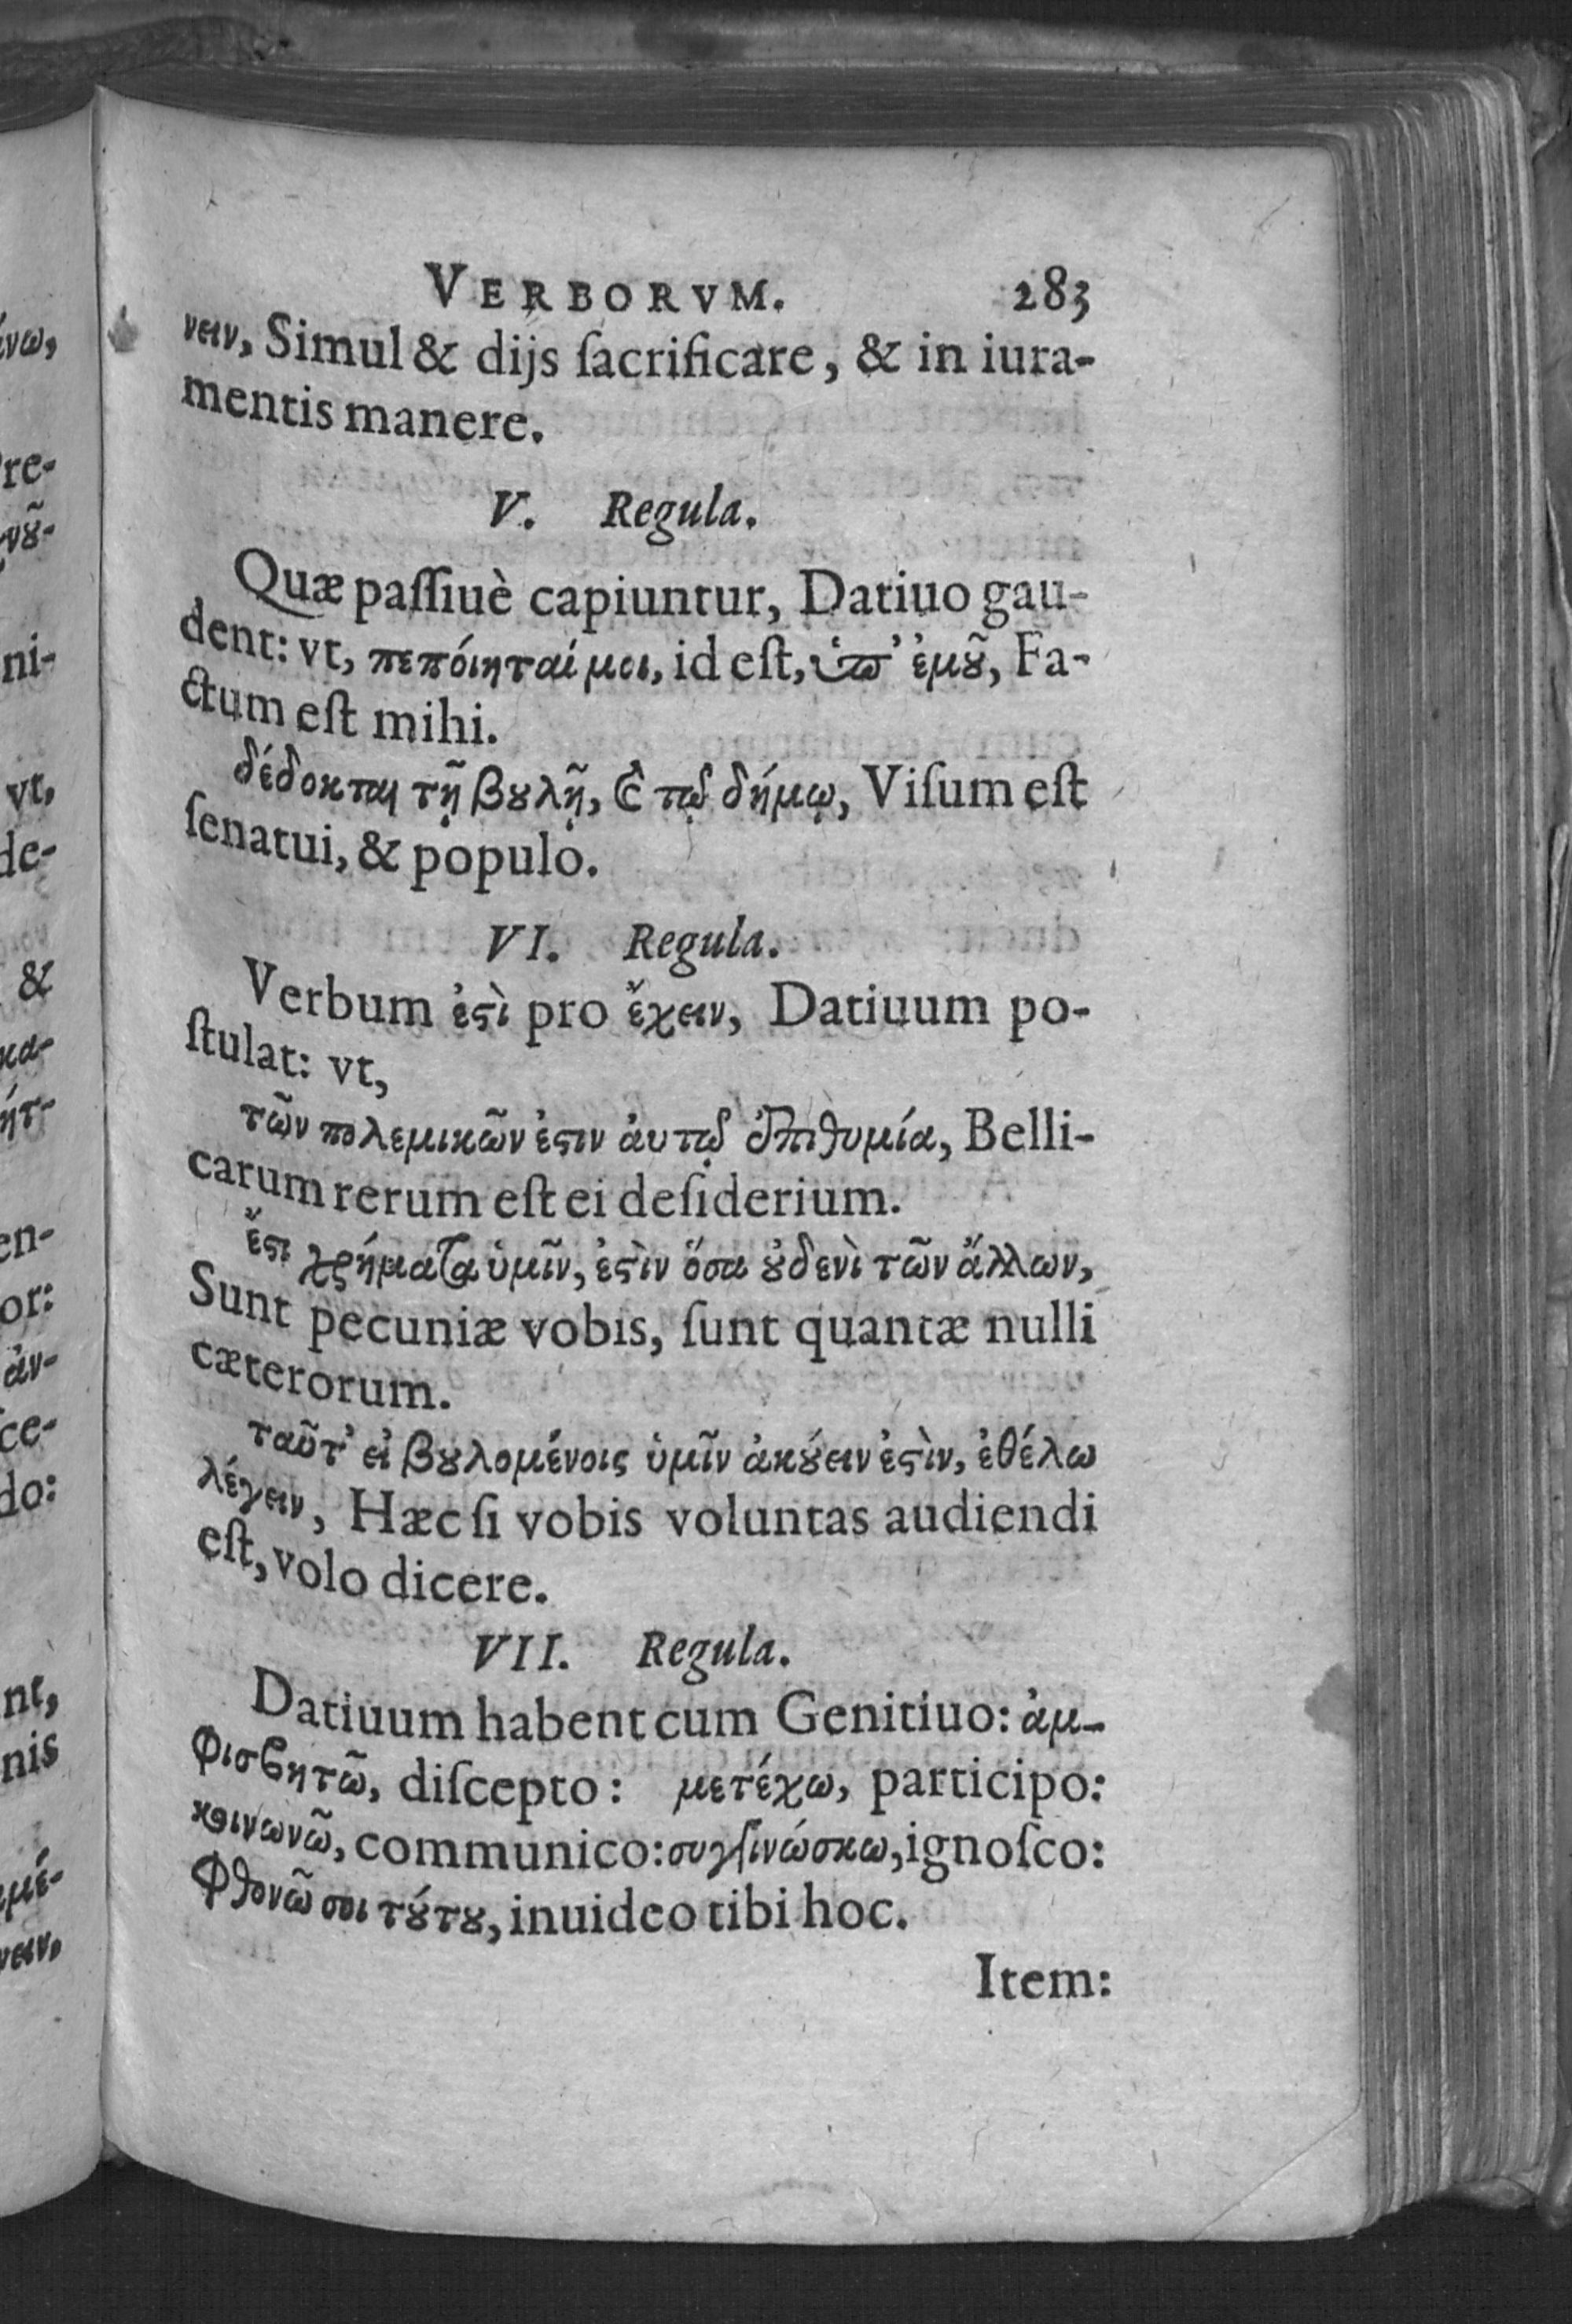 VERBORVM. 283
νειν, Simul & dijs ſacrificare, & in iura-
mentis manere.
V. Regula.
Quæ paſſiuè capiuntur, Datiuo gau-
dent: vt, πεπόιηταί μοι, id eſt, ὑπ' ἐμȣ͂, Fa-
ctum eſt mihi.
δέδοκται τῇ βȣλῇ, ϗ τῷ δήμῳ, Viſum eſt
ſenatui, & populo.
VI. Regula.
Verbum ἐϛὶ pro ἔχειν, Datiuum po-
ſtulat: vt,
τῶν πολεμικῶν ἐϛιν ἀυτῷ ἐπιθυμία, Belli-
carum rerum eſt ei deſiderium.
ἔϛι χρήματα ὑμῖν, ἐϛὶν ὅσα ȣ̓δενὶ τῶν ἄλλων,
Sunt pecuniæ vobis, ſunt quantæ nulli
cæterorum.
ταῦτ' εἰ βȣλομένοις ὑμῖν ἀκȣ́ειν ἐϛὶν, ἐθέλω
λέγειν, Hæc ſi vobis voluntas audiendi
eſt, volo dicere.
VII. Regula.
Datiuum habent cum Genitiuo: ἀμ-
φισβητῶ, diſcepto: μετέχω, participo:
κοινωνῶ, communico: συγγινώσκω, ignoſco:
φθονῶ σοι τȣ́τȣ, inuideo tibi hoc.
Item: